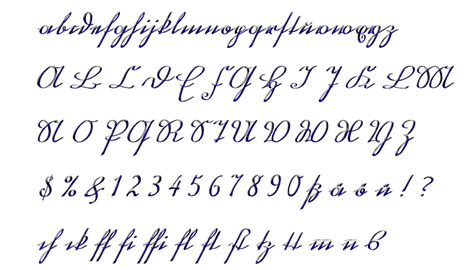 abcdefghijklmnopqrstuvwxyz
A B C D E F G H I J K L M
N O P Q R S T U V W X Y Z
$ % & 1 2 3 4 5 6 7 8 9 0 ß ä ö ü ! ?
ch ck ff fi ffi fl ft ſt tz tt m̄ n̄